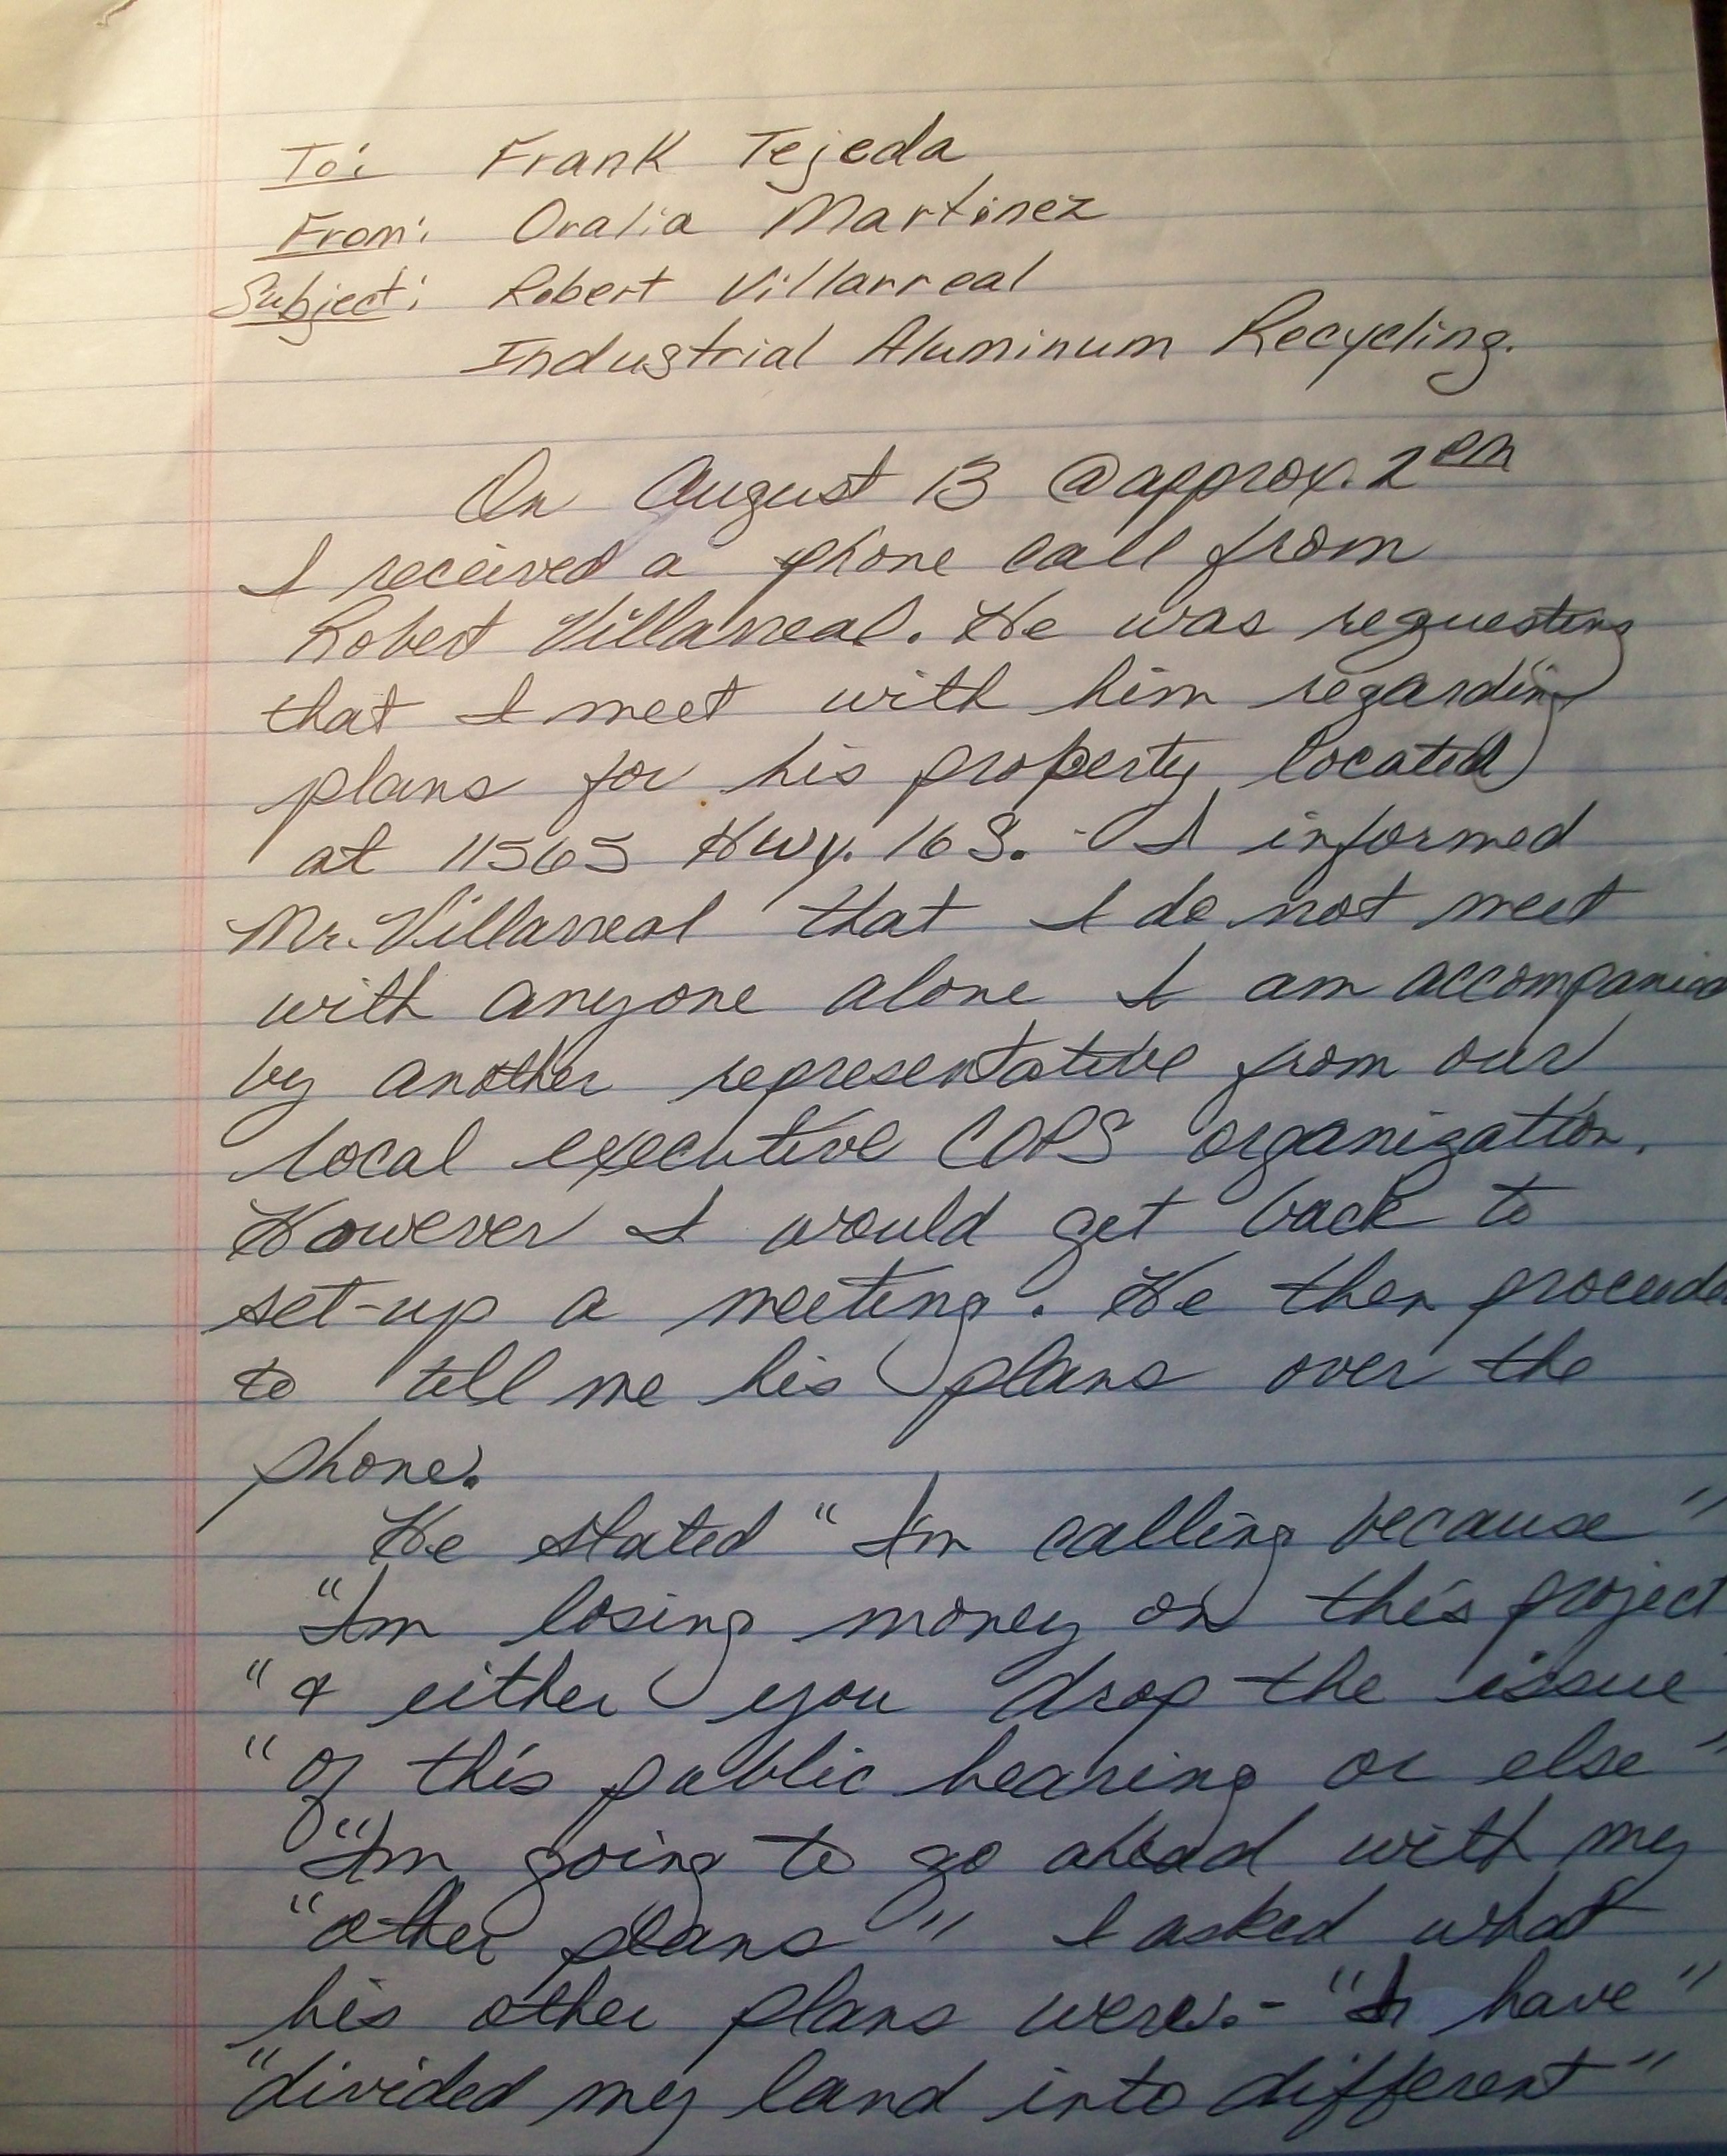 To: Frank Tejeda
From: Oralia Martinez
Subject: Robert Villarreal
Industrial Aluminum Recycling.
On August 13 @ approx. 2 pm
I received a phone call from
Robert Villarreal. He was requesting
that I meet with him regarding
plans for his property located
at 11565 Hwy. 16 S. - I informed
Mr. Villarreal that I do not meet
with anyone alone I am accompanied
by another representative from our
local executive COPS organization.
However I would get back to
set-up a meeting. He then proceeded
to tell me his plans over the
phone.
He stated "I'm calling because"
"I'm losing money on this project
"& either you drop the issue"
"of this public hearing or else"
"I'm going to go ahead with my
"other plans" I asked what
his other plans were. - "I have"
"divided my land into different"